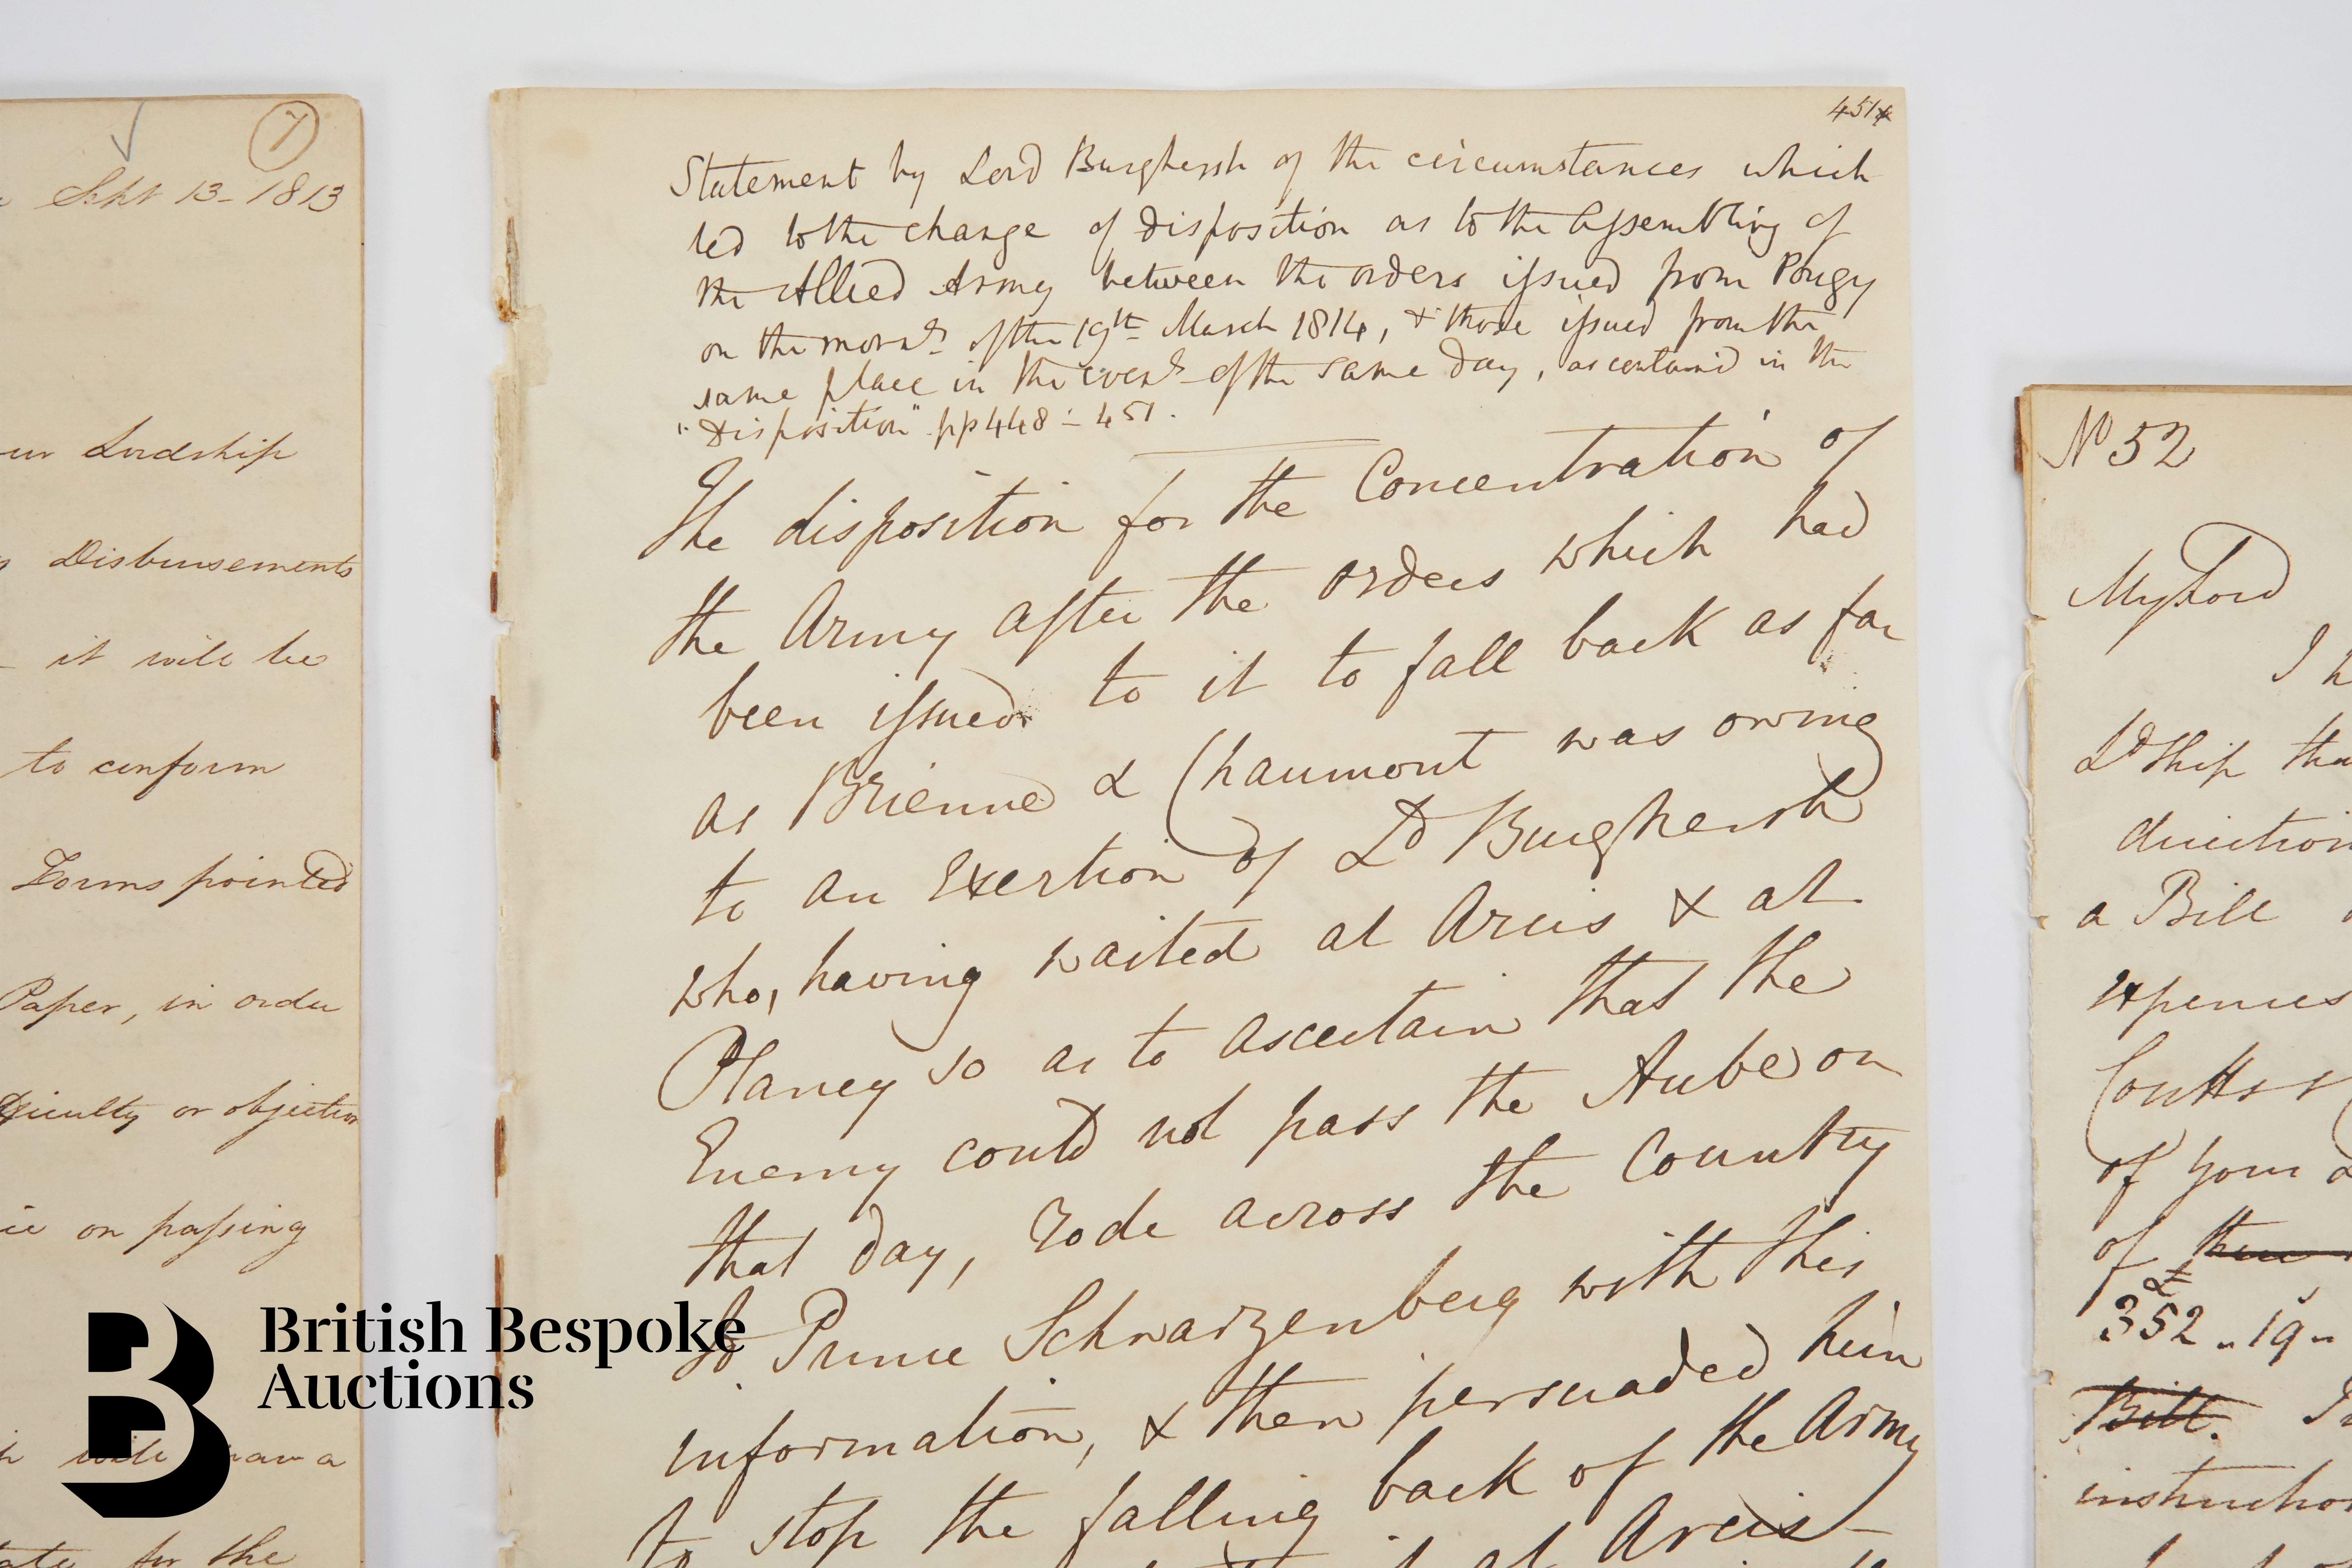 7
Sept 13 - 1813
Lordship
Disbursements
it will be
to conform
Forms pointed
Paper, in order
or objection
on passing
for the
451x
Statement by Lord Burghersh of the circumstances which
led to the change of disposition as to the Assembling of
the Allied Army between the orders issued from Pougy
on the morng of the 19th March 1814, & those issued from the
same place in the eveng of the same day, as contained in the
"Disposition" pp 448 - 451.
The disposition for the Concentration of
the Army after the orders which had
been issued to it to fall back as far
as Brienne & Chaumont was owing
to an Exertion of Ld Burghersh
who, having waited at Arcis & at
Plancy so as to ascertain that the
Enemy could not pass the Aube on
that day, rode across the Country
to Prince Schwarzenberg with this
information, & then persuaded him
to stop the falling back of the Army
at Arcis -
No 52
My Lord
I h
Ldship tha
direction
a Bill
expences
Coutts &
of your
of
£
352 .. 19 ..
Bill.
instruction
British Bespoke
Auctions